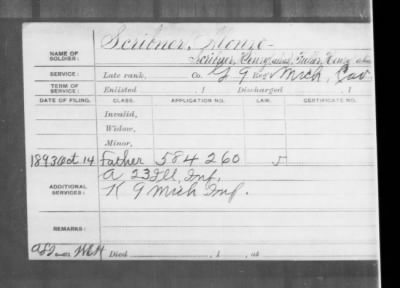 Scribner, Monro
NAME OF SOLDIER: Scribner, Henry alias, Fuller, Henry alias
SERVICE: Late rank, Co. G 9 Reg't Mich. Cav
TERM OF SERVICE: Enlisted , 1 Discharged , 1
DATE OF FILING. CLASS. APPLICATION NO. LAW. CERTIFICATE NO.
Invalid,
Widow,
Minor,
1893 Oct 14 Father 584260
ADDITIONAL SERVICES: A 23 Ill. Inf.
K 9 Mich Inf.
REMARKS:
Died , 1 , at